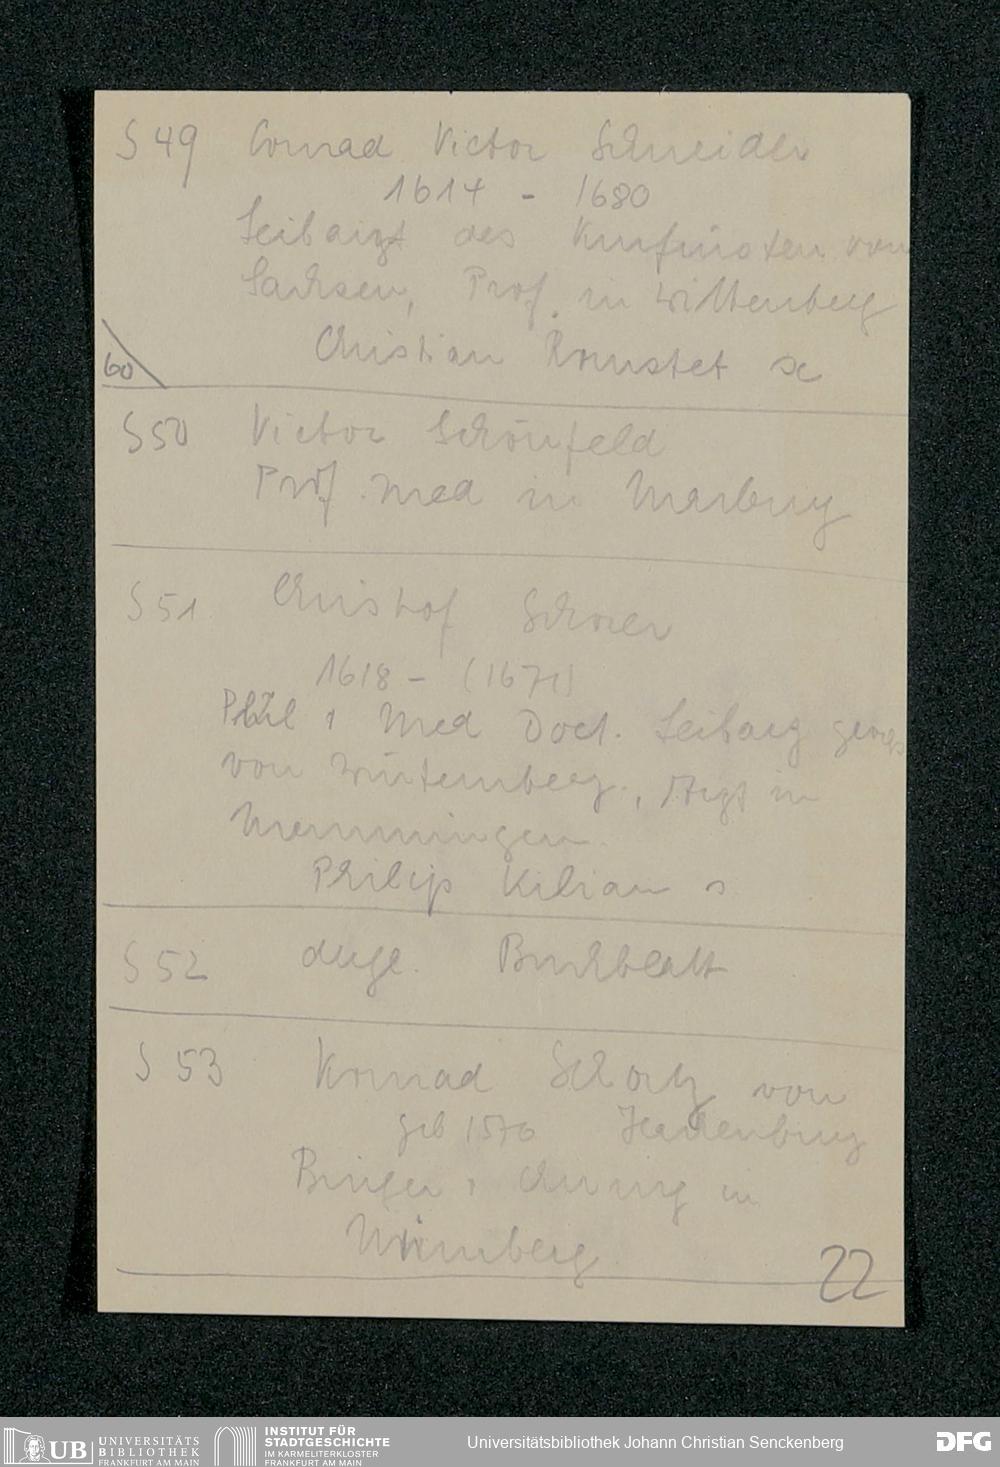 S 49 Conrad Victor Schneider
1614 - 1680
Leibarzt des Kurfürsten von
Sachsen, Prof. in Wittenberg
Christian Romstet sc
60
S 50 Victor Schönfeld
Prof. med in Marburg
S 51 Christof Schorer
1618 - (1671)
Phil u Med Doct. Leibarz
von Würtemberg., Arzt in
Memmingen.
Philip Kilian s
S 52 Buchblatt
S 53 Konrad von
geb 1570
Bürger u in
Nürnberg
22
UB UNIVERSITÄTS
BIBLIOTHEK
FRANKFURT AM MAIN
INSTITUT FÜR
STADTGESCHICHTE
IM KARMELITERKLOSTER
FRANKFURT AM MAIN
Universitätsbibliothek Johann Christian Senckenberg
DFG